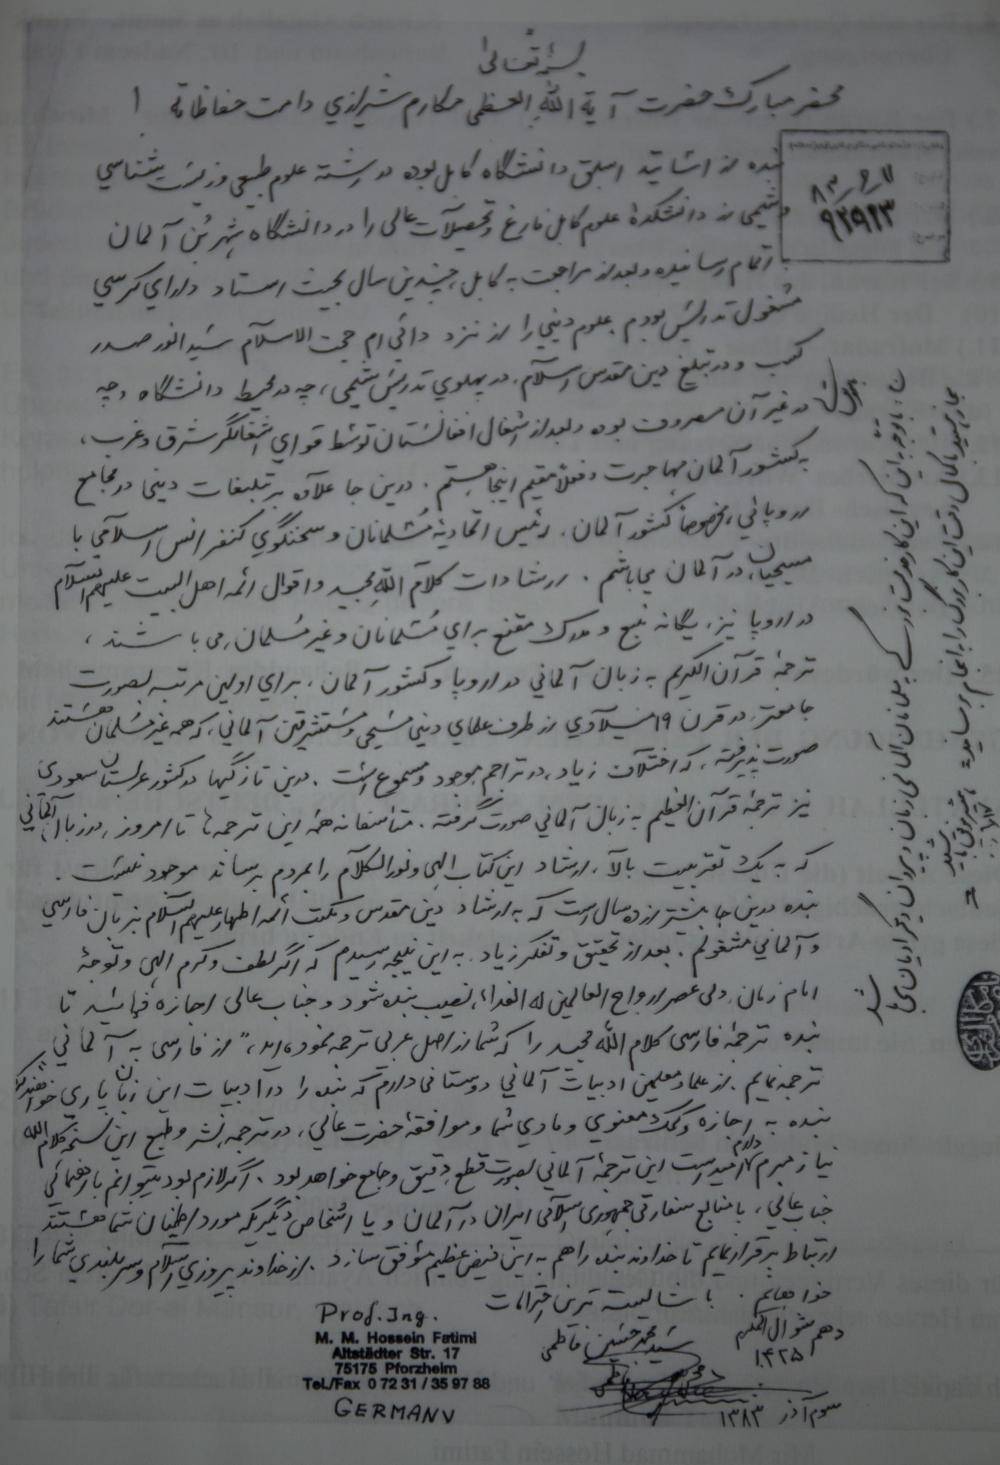 بسمه تعالی
محضر مبارک حضرت آیة الله العظمی مکارم شیرازی دامت حفاظاته !
بنده از اساتید اسبق دانشگاه کابل بوده در رشته علوم طبیعی و زیست شناسی
و شیمی از دانشکدهٔ علوم کابل فارغ و تحصیلات عالی را در دانشگاه شهر بُن آلمان
اتمام رسانیده و بعد از مراجعت به کابل، چندین سال بحیث استاد دارای کرسی
مشغول تدریس بودم. علوم دینی را از نزد دائی ام حجت الاسلام سید انور صدر
کسب و در تبلیغ دین مقدس اسلام، در پهلوی تدریس شیمی، چه در محیط دانشگاه و چه
در غیر آن مصروف بوده و بعد از اشغال افغانستان توسط قوای اشغالگر شرق و غرب،
به کشور آلمان مهاجرت و فعلاً مقیم اینجا هستم. درین جا علاوه بر تبلیغات دینی در مجامع
اروپائی، مخصوصاً کشور آلمان، رئیس اتحادیهٔ مسلمانان و سخنگوی کنفرانس اسلامی با
مسیحیان، در آلمان می باشم. ارشادات کلام الله مجید و اقوال ائمه اهل البیت علیهم السلام
در اروپا نیز، یگانه منبع و مدرک مقنع برای مسلمانان و غیر مسلمان، می باشند،
ترجمهٔ قرآن الکریم به زبان آلمانی در اروپا و کشور آلمان، برای اولین مرتبه بصورت
جامعتر، در قرن ۱۹ میلادی از طرف علمای دینی مسیحی و مستشرقین آلمانی، که همه غیر مسلمان هستند
صورت پذیرفته، که اختلاف زیاد، در تراجم موجود و مسموع است. درین تازگیها در کشور عربستان سعودی
نیز ترجمهٔ قرآن العظیم به زبان آلمانی صورت گرفته. متأسفانه همهٔ این ترجمه ها تا امروز، در زبان آلمانی
که به یک تقریب بالا، ارشاد این کتاب الهی و نور الکلام را بمردم برساند موجود نیست.
بنده درین جا بیشتر از ده سال است که به ارشاد دین مقدس و مکتب ائمه اطهار علیهم السلام بزبان فارسی
و آلمانی مشغولم. بعد از تحقیق و تفکر زیاد، به این نتیجه رسیدم که اگر لطف و کرم الهی و توجهٔ
امام زمان، ولی عصر ارواح العالمین له الفداء، نصیب بنده شود و جناب عالی اجازه فرمائید تا
بنده ترجمهٔ فارسی کلام الله مجید را که شما از اصل عربی ترجمه نموده اید، از فارسی به آلمانی
ترجمه نمایم. از علماء و معلمین ادبیات آلمانی دوستانی دارم که بنده را در ادبیات این زبان یاری خواهند کرد
بنده به اجازه و کمک معنوی و مادی شما و موافقهٔ حضرت عالی، در ترجمه، نشر و طبع این نسخه کلام الله
نیاز مبرم دارم امید است این ترجمهٔ آلمانی بصورت قطع دقیق و جامع خواهد بود. اگر لازم بود میتوانم با رهنمائی
جناب عالی، با منابع سفارتی جمهوری اسلامی ایران در آلمان و یا اشخاص دیگریکه مورد اطمینان شما هستند
ارتباط برقرار نمایم تا خداوند بنده را هم به این فیض عظیم موفق سازد. از خداوند پیروزی اسلام و سربلندی شما را
خواهانم. با شایسته ترین احترامات
دهم شوال المکرم
۱۴۲۵
سید محمد حسین فاطمی
سوم آذر ۱۳۸۳
Prof. Ing.
M. M. Hossein Fatimi
Altstädter Str. 17
75175 Pforzheim
Tel./Fax 0 72 31 / 35 97 88
GERMANY
۸۳/۹/۱۷
۹۲۹۱۳